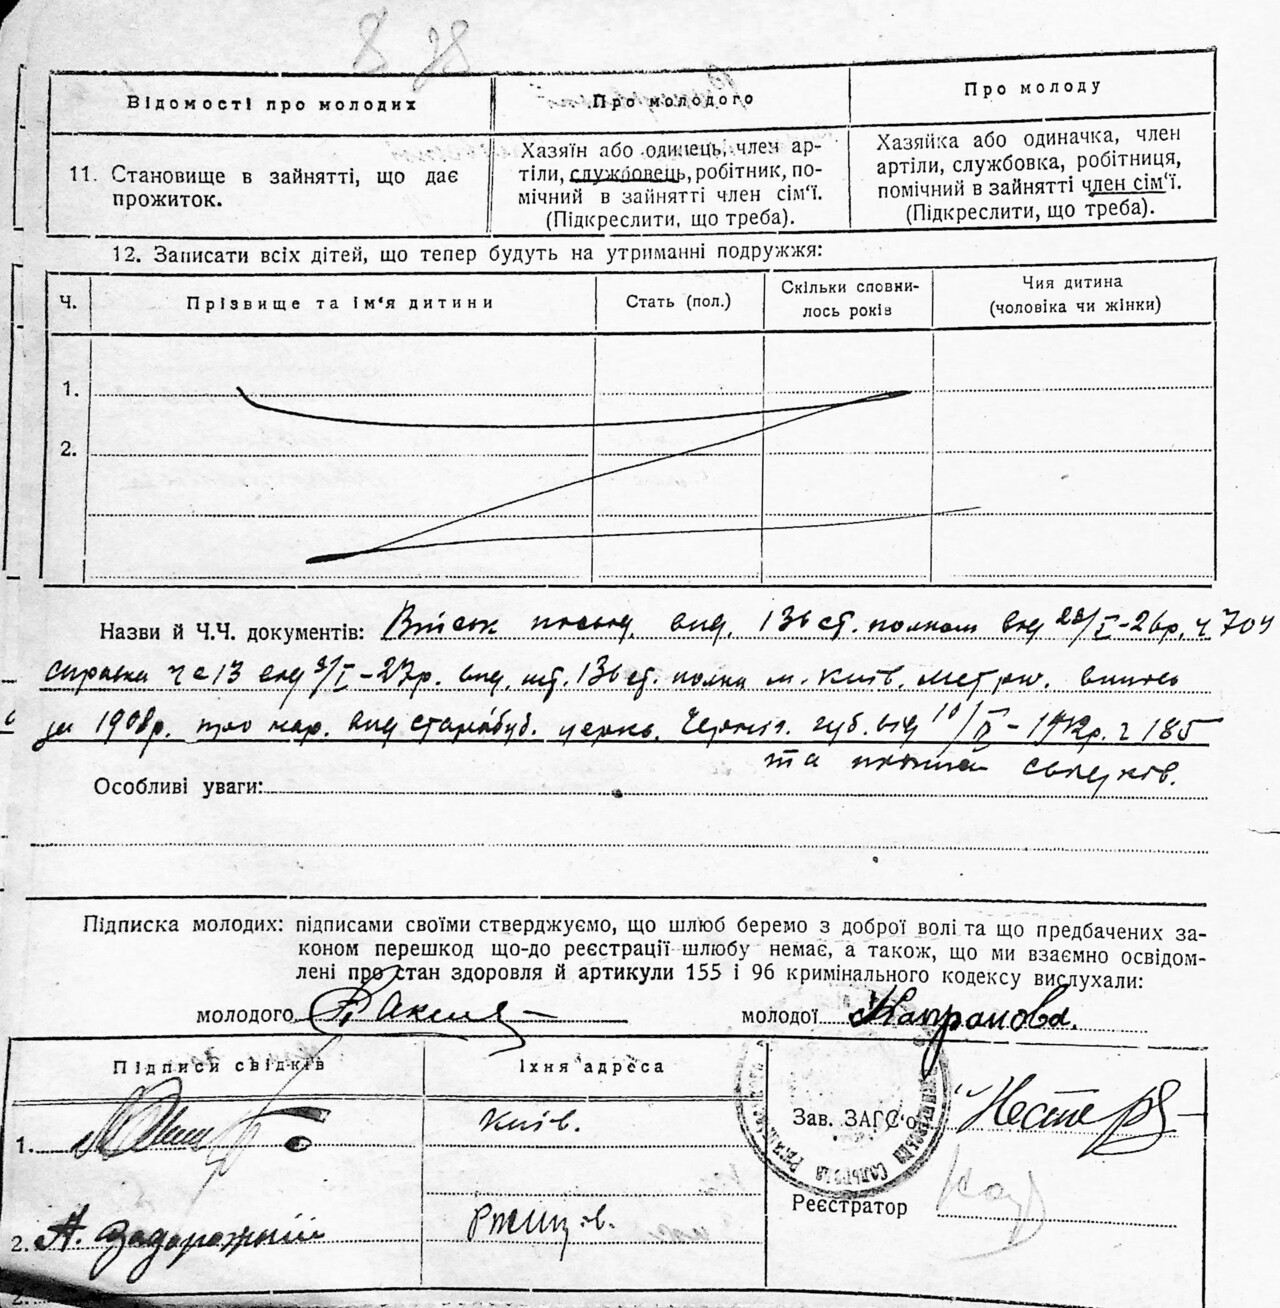 8 78
Відомості про молодих
Про молодого
Про молоду
11. Становище в зайнятті, що дає прожиток.
Хазяїн або одинець, член ар-
тіли, службовець, робітник, по-
мічний в зайнятті член сім'ї.
(Підкреслити, що треба).
Хазяйка або одиначка, член
артіли, службовка, робітниця,
помічний в зайнятті член сім'ї.
(Підкреслити, що треба).
12. Записати всіх дітей, що тепер будуть на утриманні подружжя:
Ч.
Прізвище та ім'я дитини
Стать (пол.)
Скільки сповни-
лось років
Чия дитина
(чоловіка чи жінки)
1.
2.
Назви й Ч.Ч. документів: Військ посвід. вид. 136 ст. полком від 22/I-26р. ч 704
справка ч 13 від 9/I-27р. вид. 136 ст. полка м. Київ. метрич. випись
за 1908р. про нар. вид Черніг. губ. від 10/IX-1912р. ч 185
та свідків.
Особливі уваги:
Підписка молодих: підписами своїми стверджуємо, що шлюб беремо з доброї волі та що предбачених за-
коном перешкод що-до реєстрації шлюбу немає, а також, що ми взаємно освідом-
лені про стан здоровля й артикули 155 і 96 кримінального кодексу вислухали:
молодого
молодої Капранова.
Підписи свідків
Їхня адреса
1.
Київ.
Зав. ЗАГС'ом
Нестер
2. А. Задорожній
Ржищів.
Реєстратор
2.